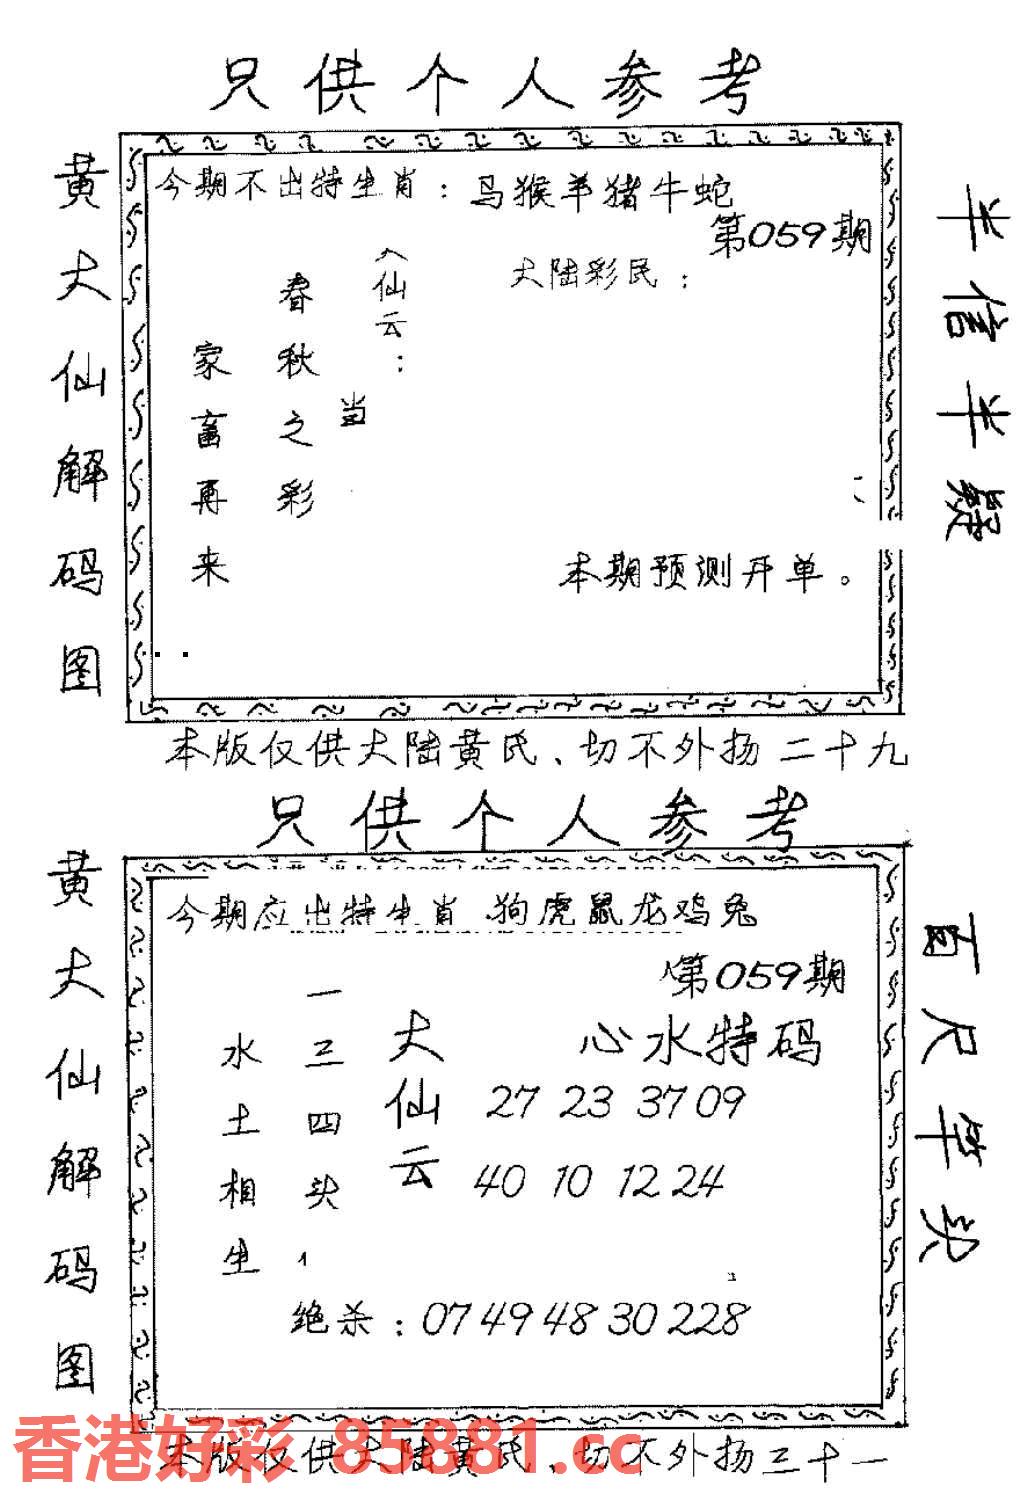 只供个人参考
黄大仙解码图
今期不出特生肖：马猴羊猪牛蛇
第059期
大陆彩民：
大仙云：
当
春秋之彩
家畜再来
本期预测开单。
半信半疑
本版仅供大陆黄氏、切不外扬二十九
只供个人参考
黄大仙解码图
今期应出特生肖 狗虎鼠龙鸡兔
第059期
心水特码
大仙云
一三四头
水土相生
27 23 37 09
40 10 12 24
绝杀：07 49 48 30 228
百尺竿头
香港好彩 85881.cc
本版仅供大陆黄氏、切不外扬三十一